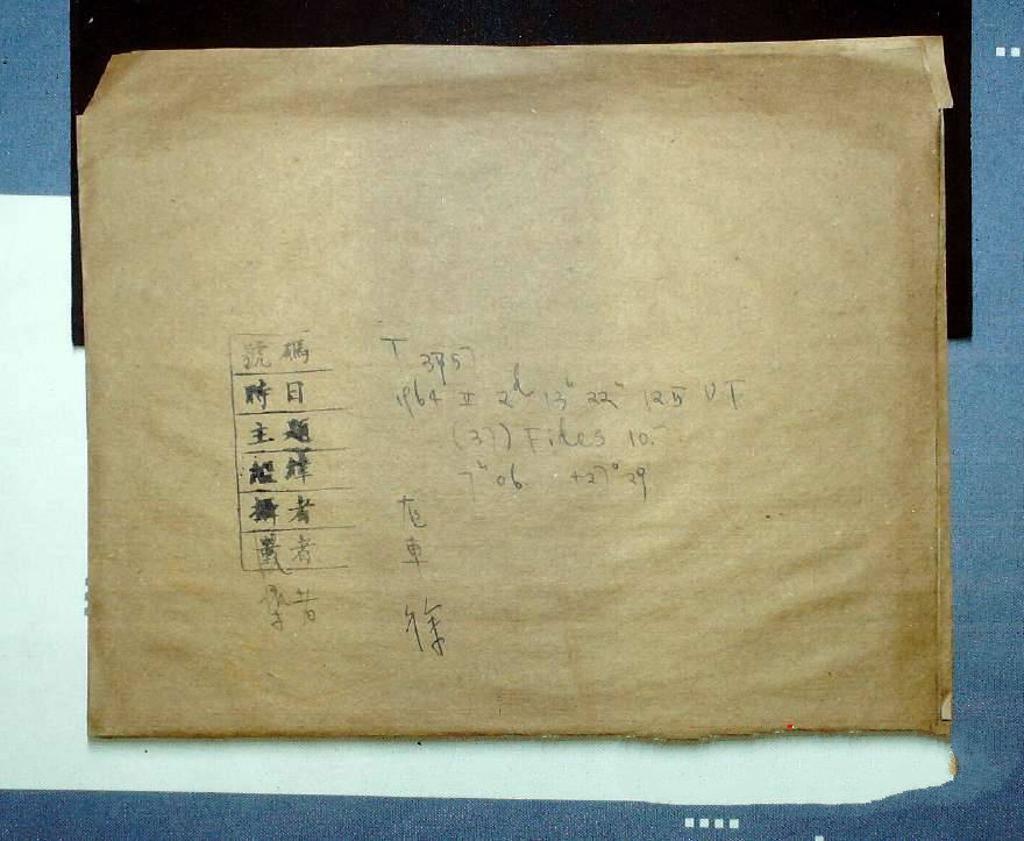 號碼 T 3957
時日 1964 II 2d 13h 22m 125 UT
主題 (37) Fides 10.
經緯 7h 06 +27° 29
攝者
車
者 徐